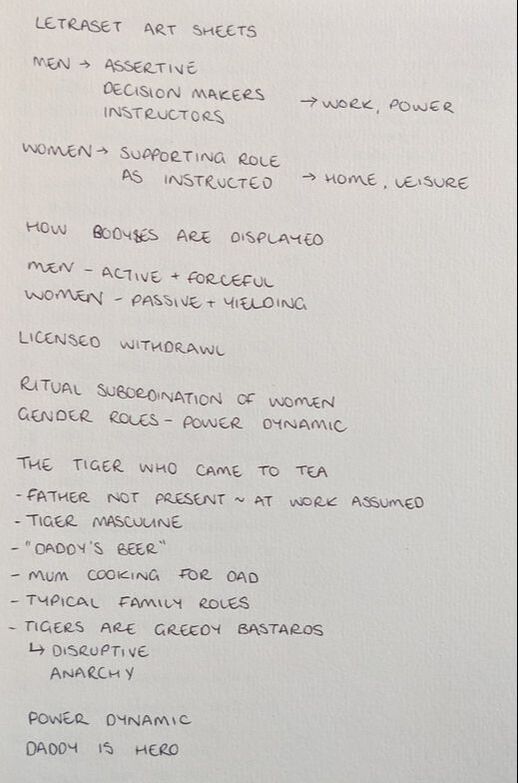 LETRASET ART SHEETS
MEN → ASSERTIVE
DECISION MAKERS
INSTRUCTORS → WORK, POWER
WOMEN → SUPPORTING ROLE
AS INSTRUCTED → HOME, LEISURE
HOW BODYSES ARE DISPLAYED
MEN - ACTIVE + FORCEFUL
WOMEN - PASSIVE + YIELDING
LICENSED WITHDRAWL
RITUAL SUBORDINATION OF WOMEN
GENDER ROLES - POWER DYNAMIC
THE TIGER WHO CAME TO TEA
- FATHER NOT PRESENT ~ AT WORK ASSUMED
- TIGER MASCULINE
- "DADDY'S BEER"
- MUM COOKING FOR DAD
- TYPICAL FAMILY ROLES
- TIGERS ARE GREEDY BASTARDS
↳ DISRUPTIVE
ANARCHY
POWER DYNAMIC
DADDY IS HERO